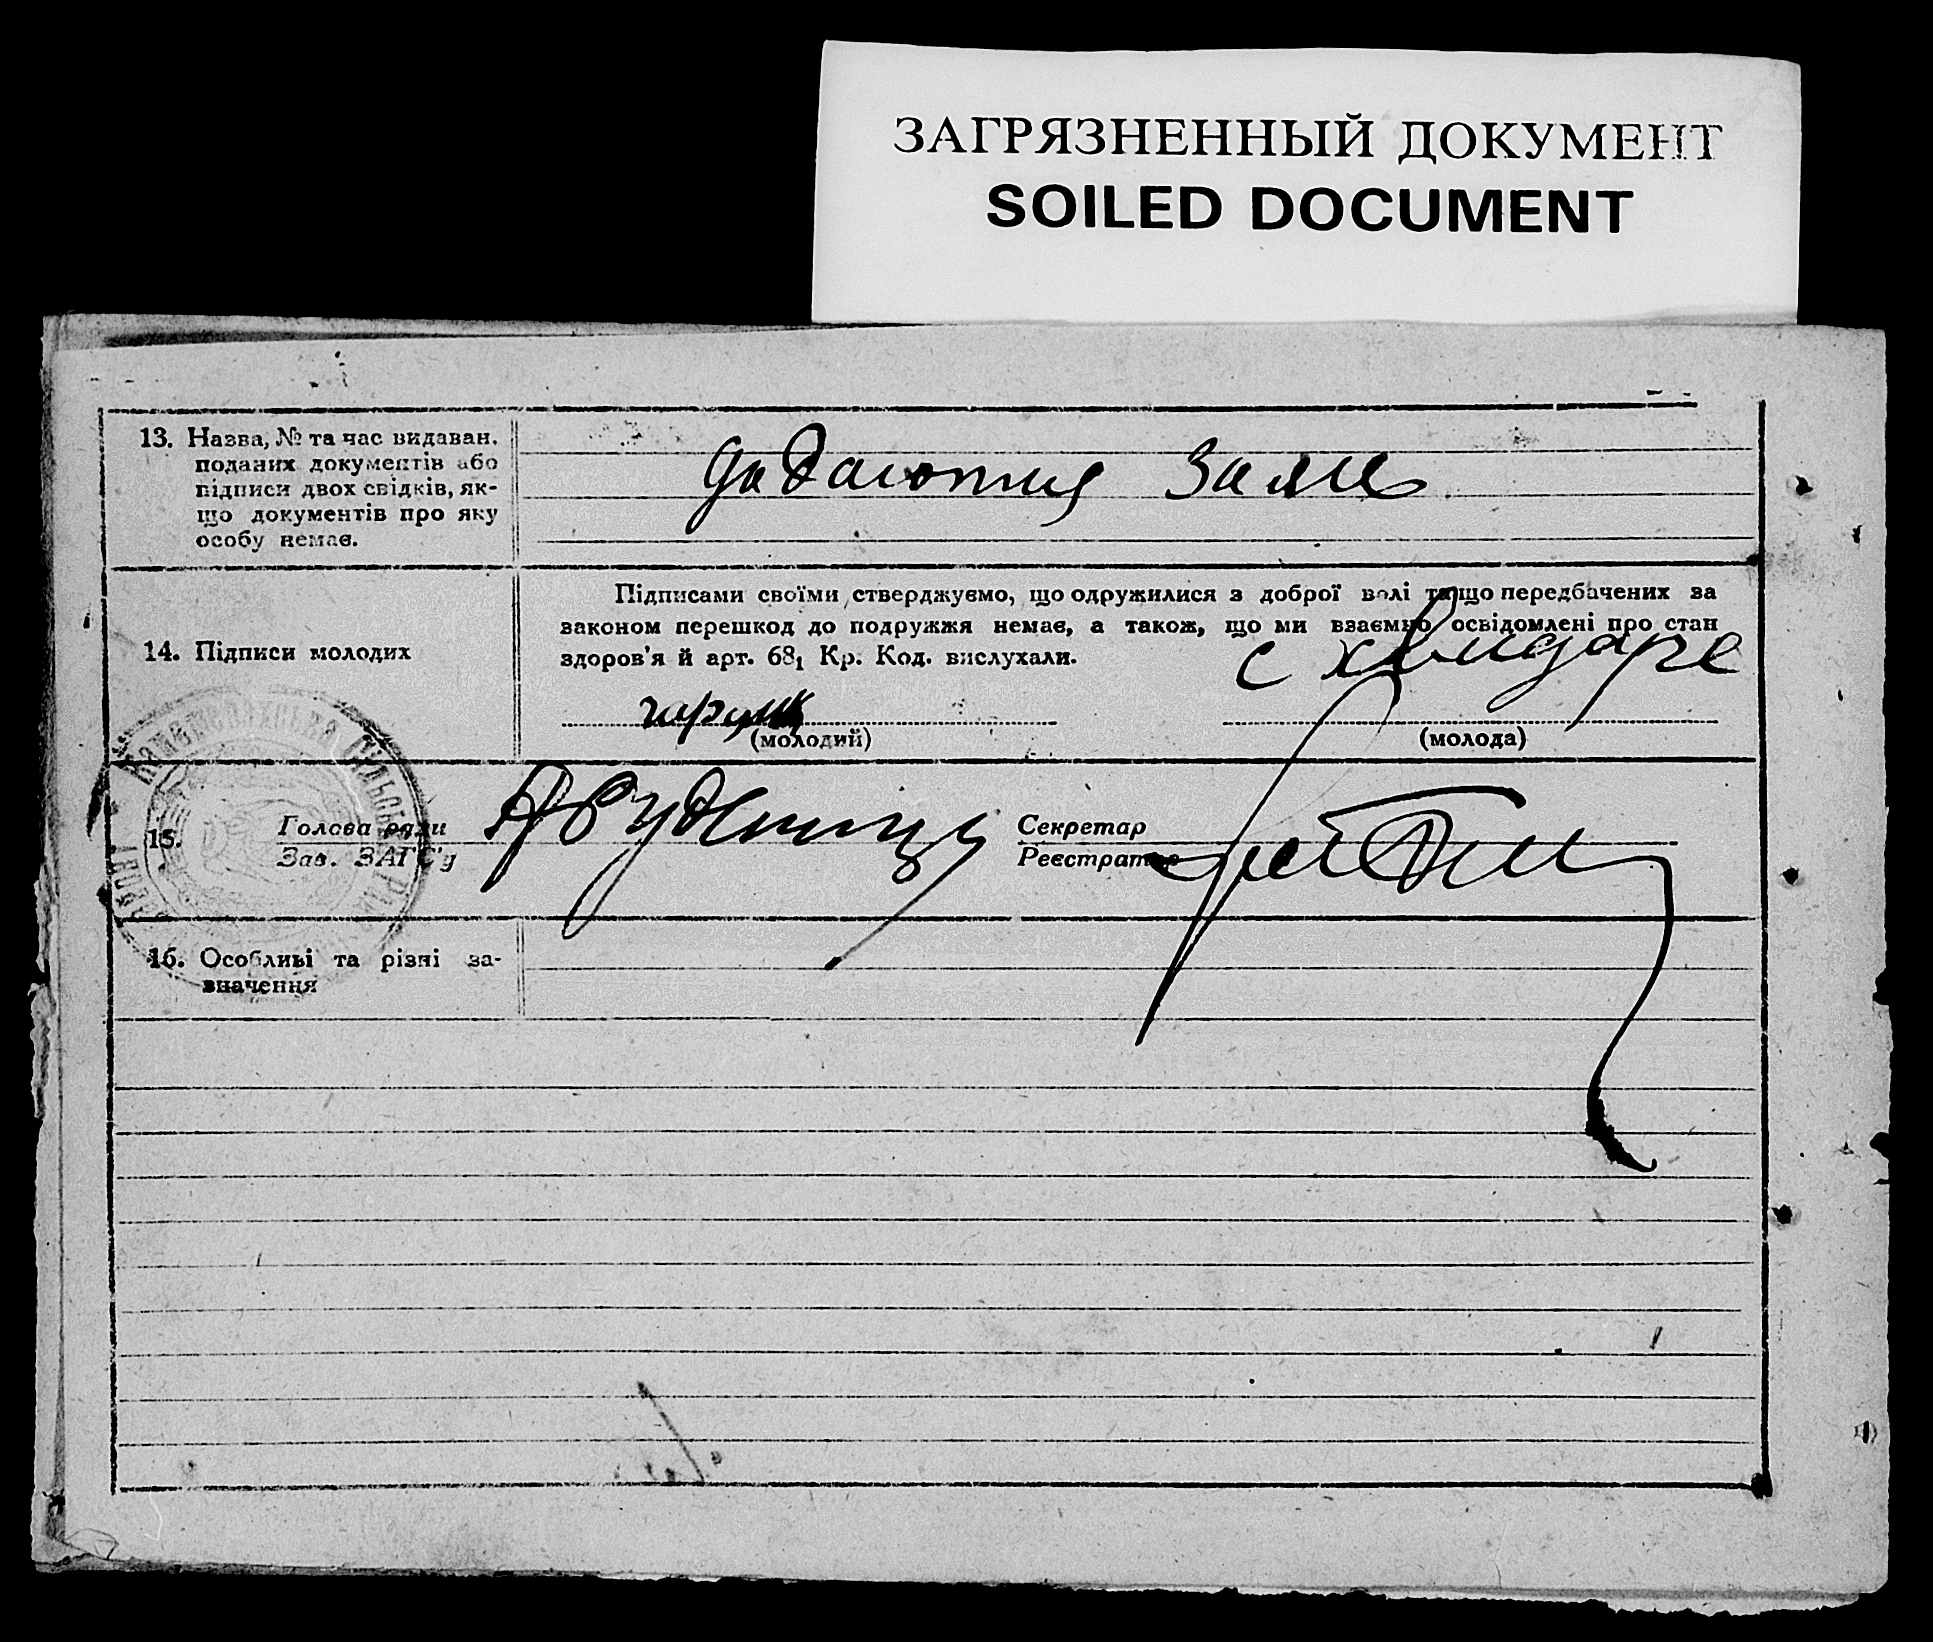 ЗАГРЯЗНЕННЫЙ ДОКУМЕНТ
SOILED DOCUMENT
13. Назва, № та час видаван.
поданих документів або
підписи двох свідків, як-
що документів про яку
особу немає.
14. Підписи молодих
Підписами своїми стверджуємо, що одружилися з доброї волі та що передбачених за
законом перешкод до подружжя немає, а також, що ми взаємно освідомлені про стан
здоров'я й арт. 68₁ Кр. Код. вислухали.
(молодий)
(молода)
15.
Голова ради
Зав. ЗАГС'у
Секретар
Реєстратор
16. Особливі та різні за-
значення